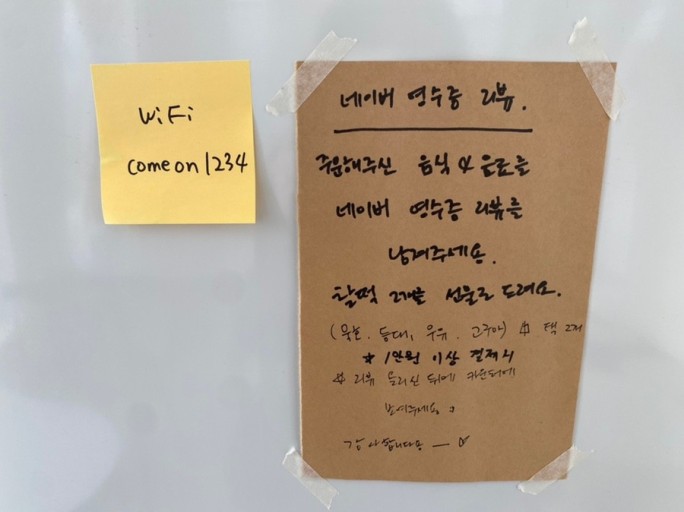 WiFi
comeon1234
네이버 영수증 리뷰.
주문해주신 음식 & 음료를
네이버 영수증 리뷰를
남겨주세용.
찰떡 2개를 선물로 드려요.
우유. 고구마)
* 1만원 이상 결제시
리뷰 올리신 뒤에 카운터에
보여주세용
감사합니다용 — ♡